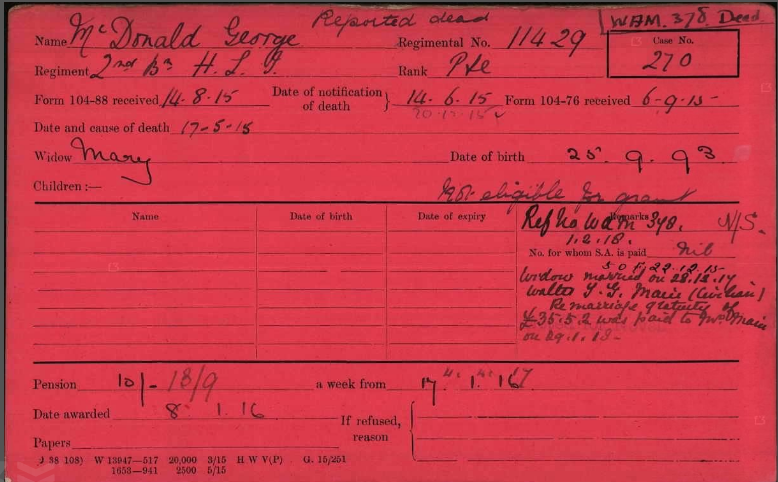 Reported dead
WBM. 378. Dead
Name McDonald George Regimental No. 11429 Case No.
Regiment 2nd Bn H. L. I. Rank Pte 270
Form 104-88 received 14.8.15 Date of notification of death } 14.6.15 Form 104-76 received 6-9-15
Date and cause of death 17-5-15
Widow Mary Date of birth 25. 9. 93
Children :—
Not eligible for grant
Name Date of birth Date of expiry Remarks
Ref No 378. N/S.
1.2.18.
No. for whom S.A. is paid Nil
22.12.15
Widow married on 28.12.17
Walter (Civilian)
Remarriage gratuity of
£35.5.2 was paid to Mrs
on 1.18-
Pension 10/- 18/9 a week from 17 1. 16
Date awarded 8 1 16 If refused, reason
Papers
J 38 108) W 13947—517 20,000 3/15 H W V(P) G. 15/251
1653—941 2500 5/15